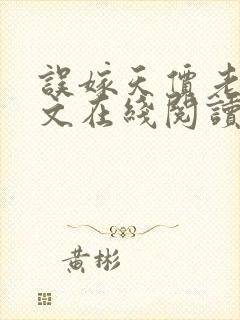 誤嫁天價老
文在綫閱讀
黃彬